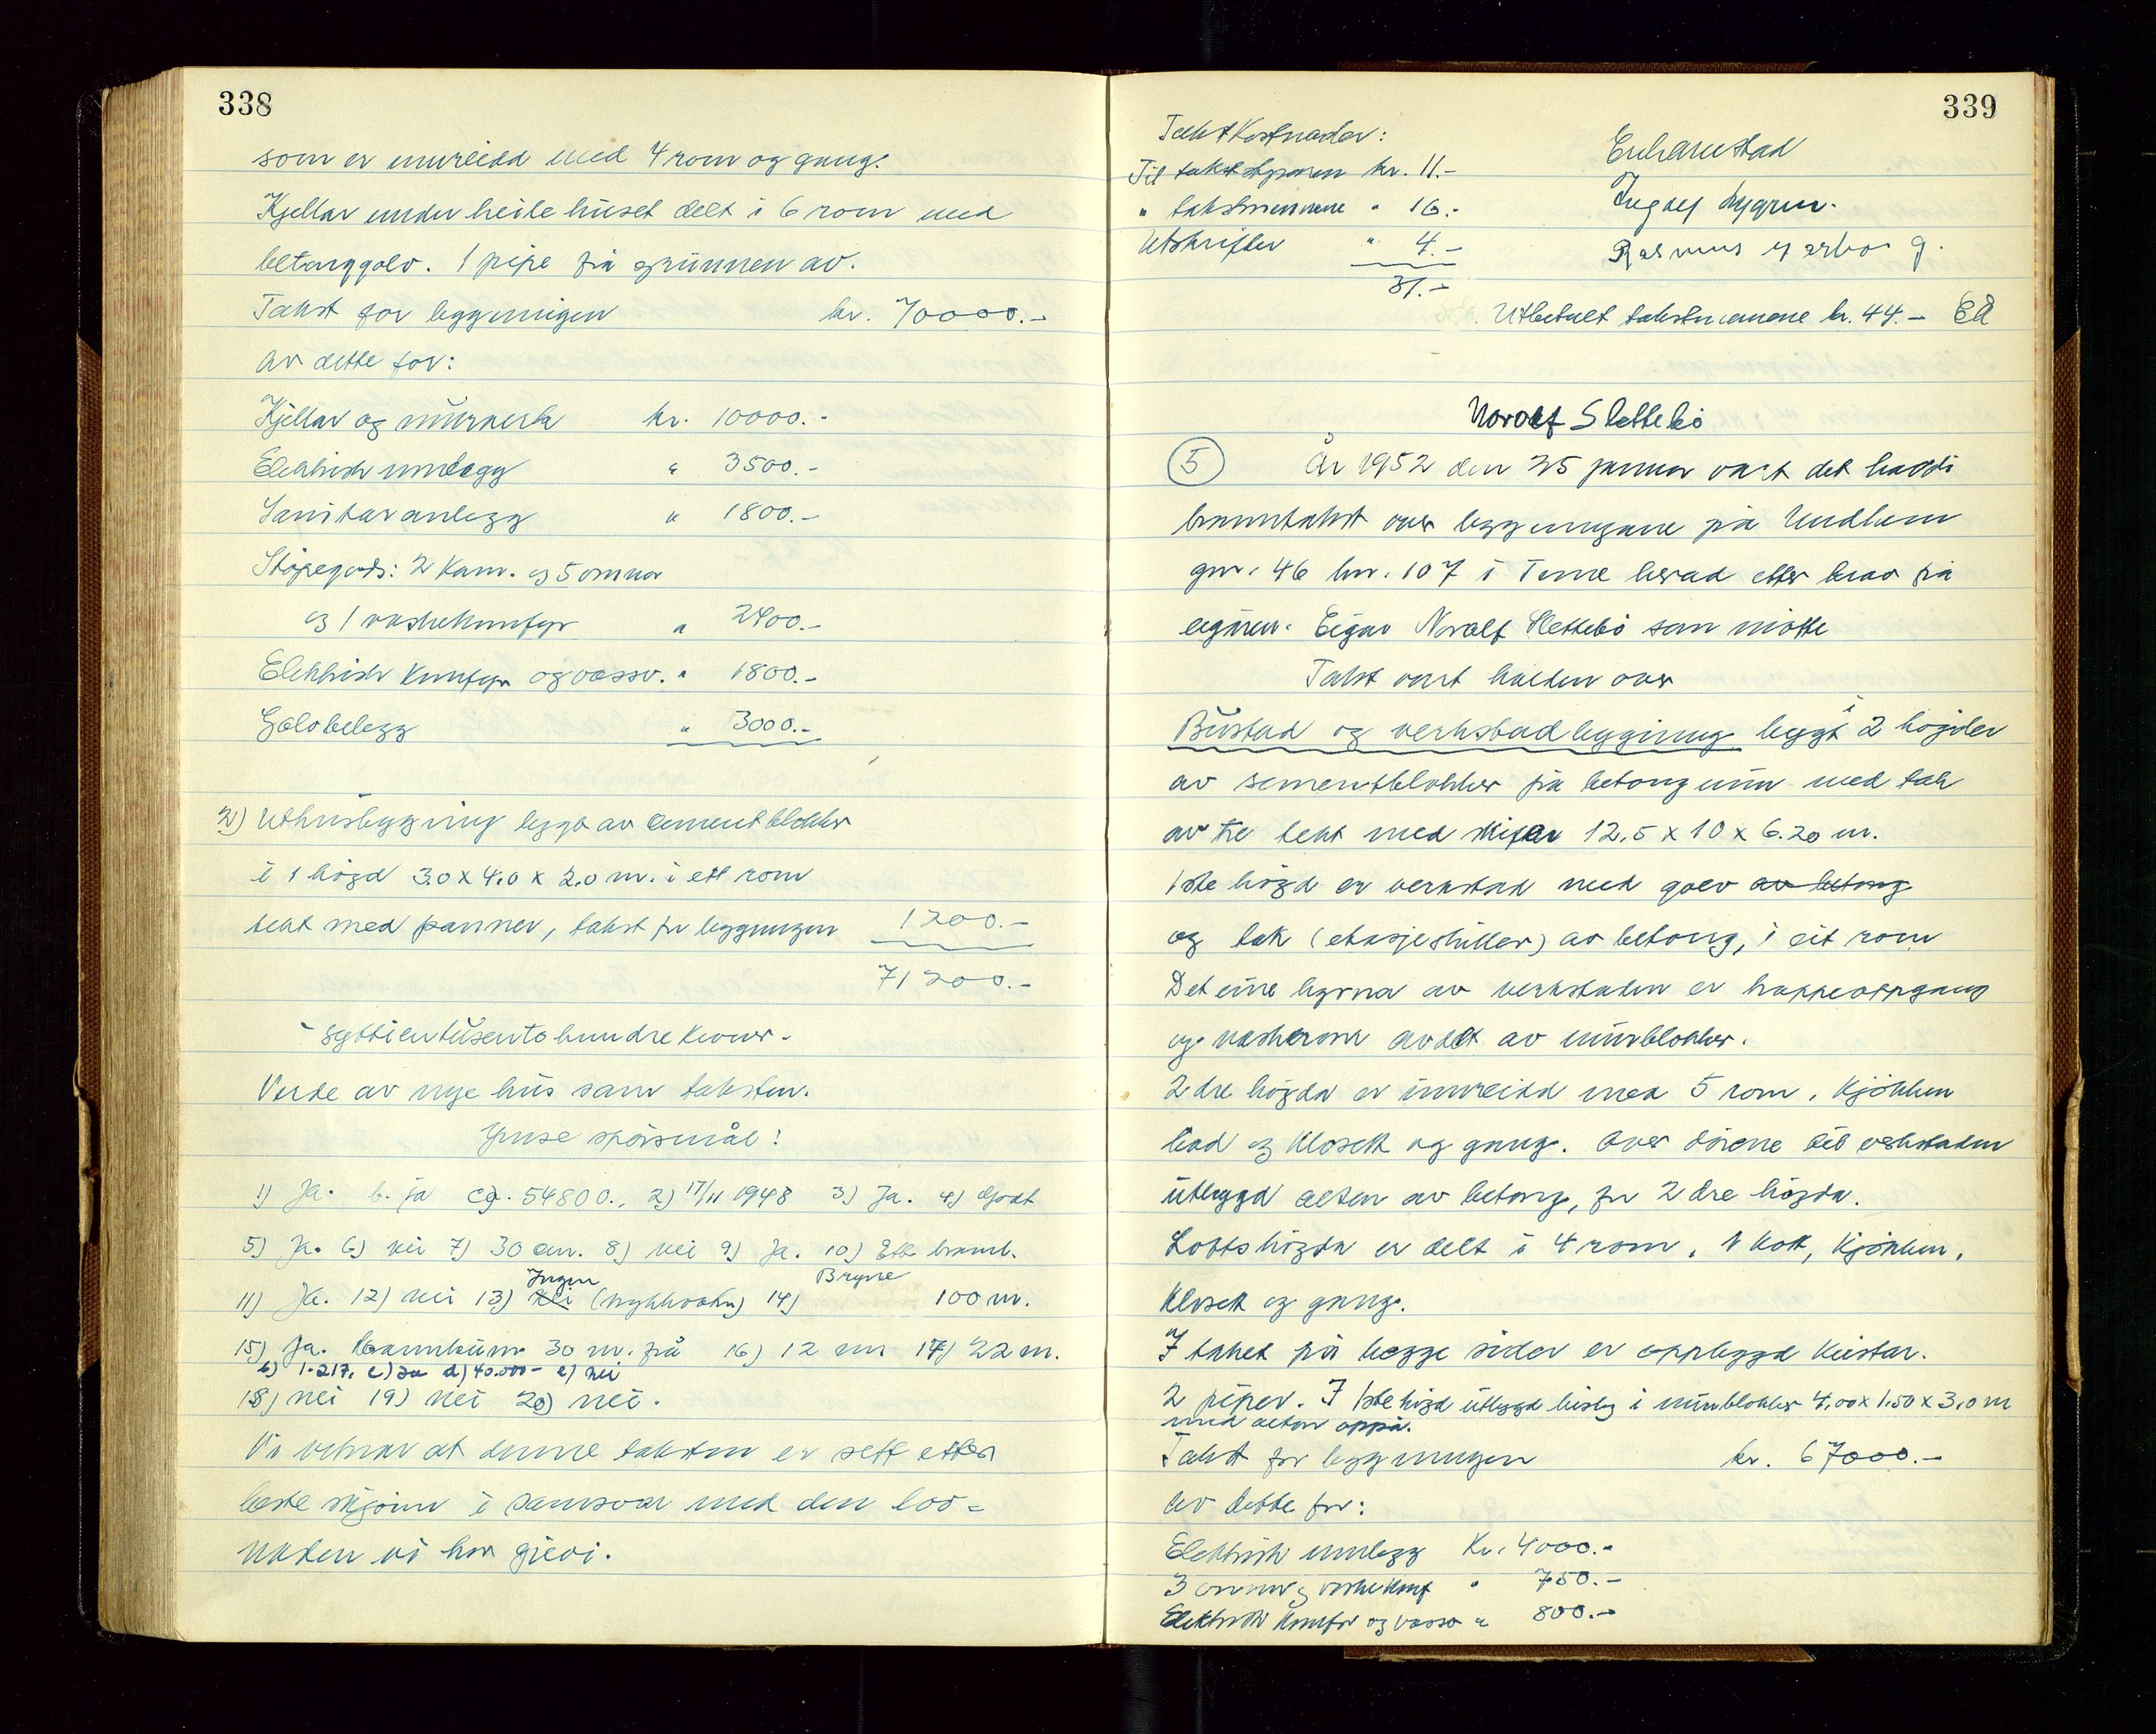 338
som er innreidd med 4 rom og gang.
Kjellar under heile huset delt i 6 rom med
betonggolv. 1 pipe frå grunnen av.
Takst for byggningen kr. 70000.-
Av dette for:
Kjellar og murverk kr. 10000.-
Elektrisk innlegg " 3500.-
Sanitæranlegg " 1800.-
Støpegods: 2 Kam. og 5 omnar
og 1 vaskekomfyr " 2400.-
Elektrisk Komfyr og vassv. " 1800.-
Golvbelegg " 3000.-
2) Uthusbyggning bygt av cementblokker
i 1 høgd 3.0 x 4.0 x 2.0 m. i ett rom
tekt med panner, takst for byggningen 1200.-
71200.-
- syttieintusentohundre kroner -
Verde av nye hus som taksten.
Ymse spørsmål:
1) Ja. b. ja c). 54800., 2) 17/11 1948 3) Ja. 4) Godt
5) Ja. 6) nei 7) 30 cm. 8) nei 9) Ja. 10) Ett brannb.
Ingen Bryne
11) Ja. 12) nei 13) nei (trykkvatn) 14) 100 m.
15) Ja. Brannkum 30 m. frå 16) 12 m 17) 22 m.
b) 1-217. c) Ja d) 40.000- e) nei
18) nei 19) nei 20) nei.
Vi vitnar at denne taksten er sett etter
beste skjønn i samsvar med den lov-
naden vi har gjevi.
339
Takstkostnader:
Til takstskjønnen kr. 11.-
" takstmennene " 16.-
Utskrifter " 4.-
31.-
Ingolf Lygren.
Rasmus
Utbetalt takstmennene kr. 44.- EÅ
Norolf Slettebø
5 År 1952 den 25 januar vart det haldi
branntakst over byggningane på Undheim
gnr. 46 bnr. 107 i Time herad etter krav frå
eigaren. Eigar Norolf Slettebø som møtte
Takst vart halden over
Bustad og verkstadbyggning bygt i 2 høgder
av sementblokker på betongmur med tak
av tre tekt med skifer 12,5 x 10 x 6.20 m.
1ste høgd er verkstad med golv av betong
og tak (etasjeskiller) av betong, i eit rom
Det eine hyrna av verkstaden er trappeoppgang
og vaskerom avdelt av murblokker.
2dre høgda er innreidd med 5 rom, Kjøkken
bad og klosett og gang. Over dørene til verkstaden
utbygd altan av betong, for 2dre høgda.
Loftshøgda er delt i 4 rom, 1 kott, Kjøkken,
klosett og gang.
I taket på begge sider er oppbygd kvistar.
2 piper. I 1ste høgd utbygd bisleg i murblokker 4,00 x 1,50 x 3,0 m
med altan oppå.
Takst for byggningen kr. 67000.-
Av dette for:
Elektrisk innlegg Kr. 4000.-
3 omnar og vaskekomf " 750.-
Elektrisk Komfyr og vassv " 800.-